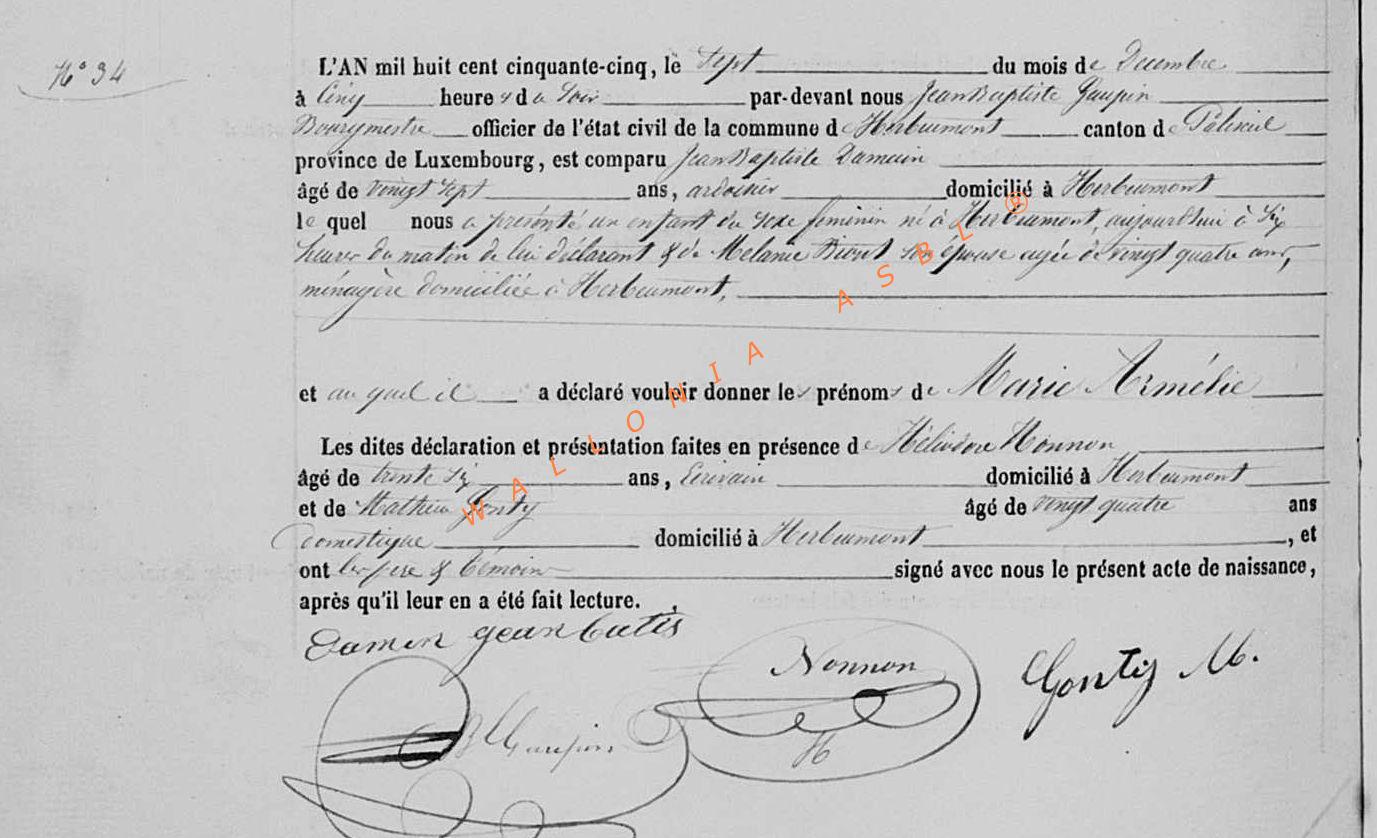 N° 34
L'AN mil huit cent cinquante-cinq, le sept du mois de Decembre
à cinq heures du soir par-devant nous Jean Baptiste Gaupin
Bourgmestre officier de l'état civil de la commune de Herbeumont canton de Paliseul
province de Luxembourg, est comparu Jean Baptiste Damain
âgé de vingt sept ans, ardoisier domicilié à Herbeumont
le quel nous a présenté un enfant du sexe feminin né à Herbeumont, aujourdhui à six
heures du matin de lui déclarant & de Melanie son épouse agée de vingt quatre ans,
ménagère domiciliée à Herbeumont,
et au quel il a déclaré vouloir donner les prénoms de Marie Armélie
Les dites déclaration et présentation faites en présence de Héliodore Nonnon
âgé de trente six ans, Ecrivain domicilié à Herbeumont
et de Mathieu Gonty âgé de vingt quatre ans
domestique domicilié à Herbeumont, et
ont les pere & témoins signé avec nous le présent acte de naissance,
après qu'il leur en a été fait lecture.
Damen jean batis
Nonnon
H
Gontiy M.
JB Gaupin
WALLONIA ASBL ®